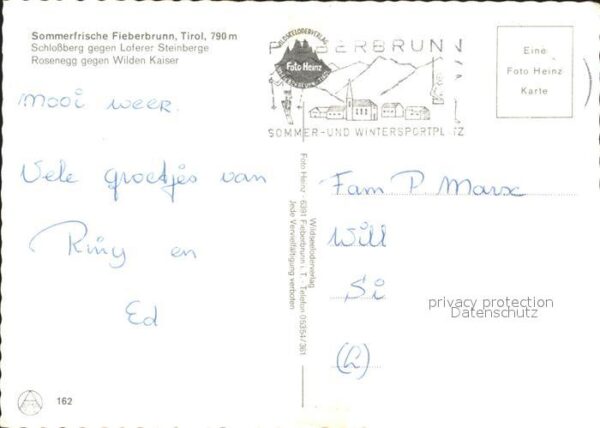 Sommerfrische Fieberbrunn, Tirol, 790 m
Schloßberg gegen Loferer Steinberge
Rosenegg gegen Wilden Kaiser
Mooi weer.
Vele groetjes van
en
Ed
FIEBERBRUNN
WILDSEELODERVERLAG
Foto Heinz
SOMMER-UND WINTERSPORTPLATZ
Eine
Foto Heinz
Karte
Wildseeloderverlag
Foto Heinz · 6391 Fieberbrunn i. T. · Telefon 05354/361
Jede Vervielfältigung verboten
Fam P Marx
Will
Si
(L)
privacy protection
Datenschutz
162